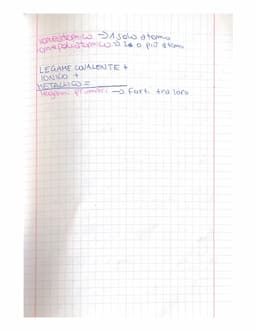 → 1 solo atomo
→ 2 o più atomi
LEGAME COVALENTE +
IONICO +
METALLICO =
legami primari → Forti tra loro